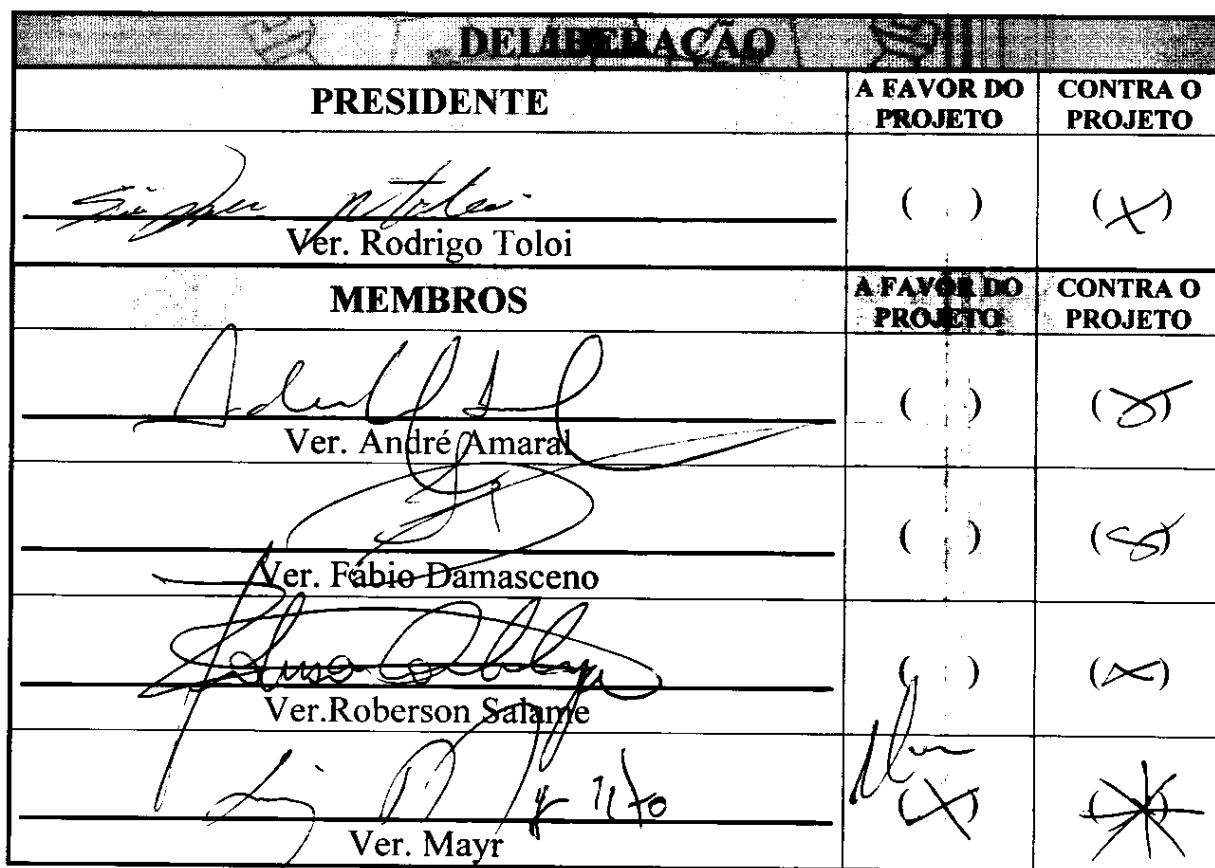 DELIBERAÇÃO
PRESIDENTE A FAVOR DO PROJETO CONTRA O PROJETO
( ) (X)
Ver. Rodrigo Toloi
MEMBROS A FAVOR DO PROJETO CONTRA O PROJETO
( ) (X)
Ver. André Amaral
( ) (X)
Ver. Fábio Damasceno
( ) (X)
Ver.Roberson Salame
(X) ( )
Ver. Mayr